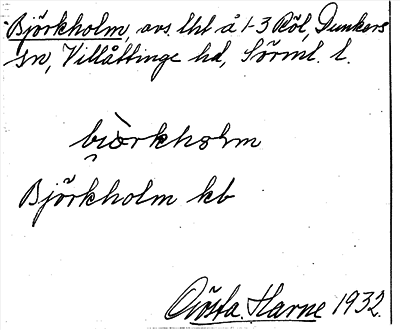 Björkholm, avs. lht å 1-3 Röl, Dunkers
sn, Villåttinge hd, Sörml. l.
bi̯òrkholm
Björkholm kb
Gösta Harne 1932.